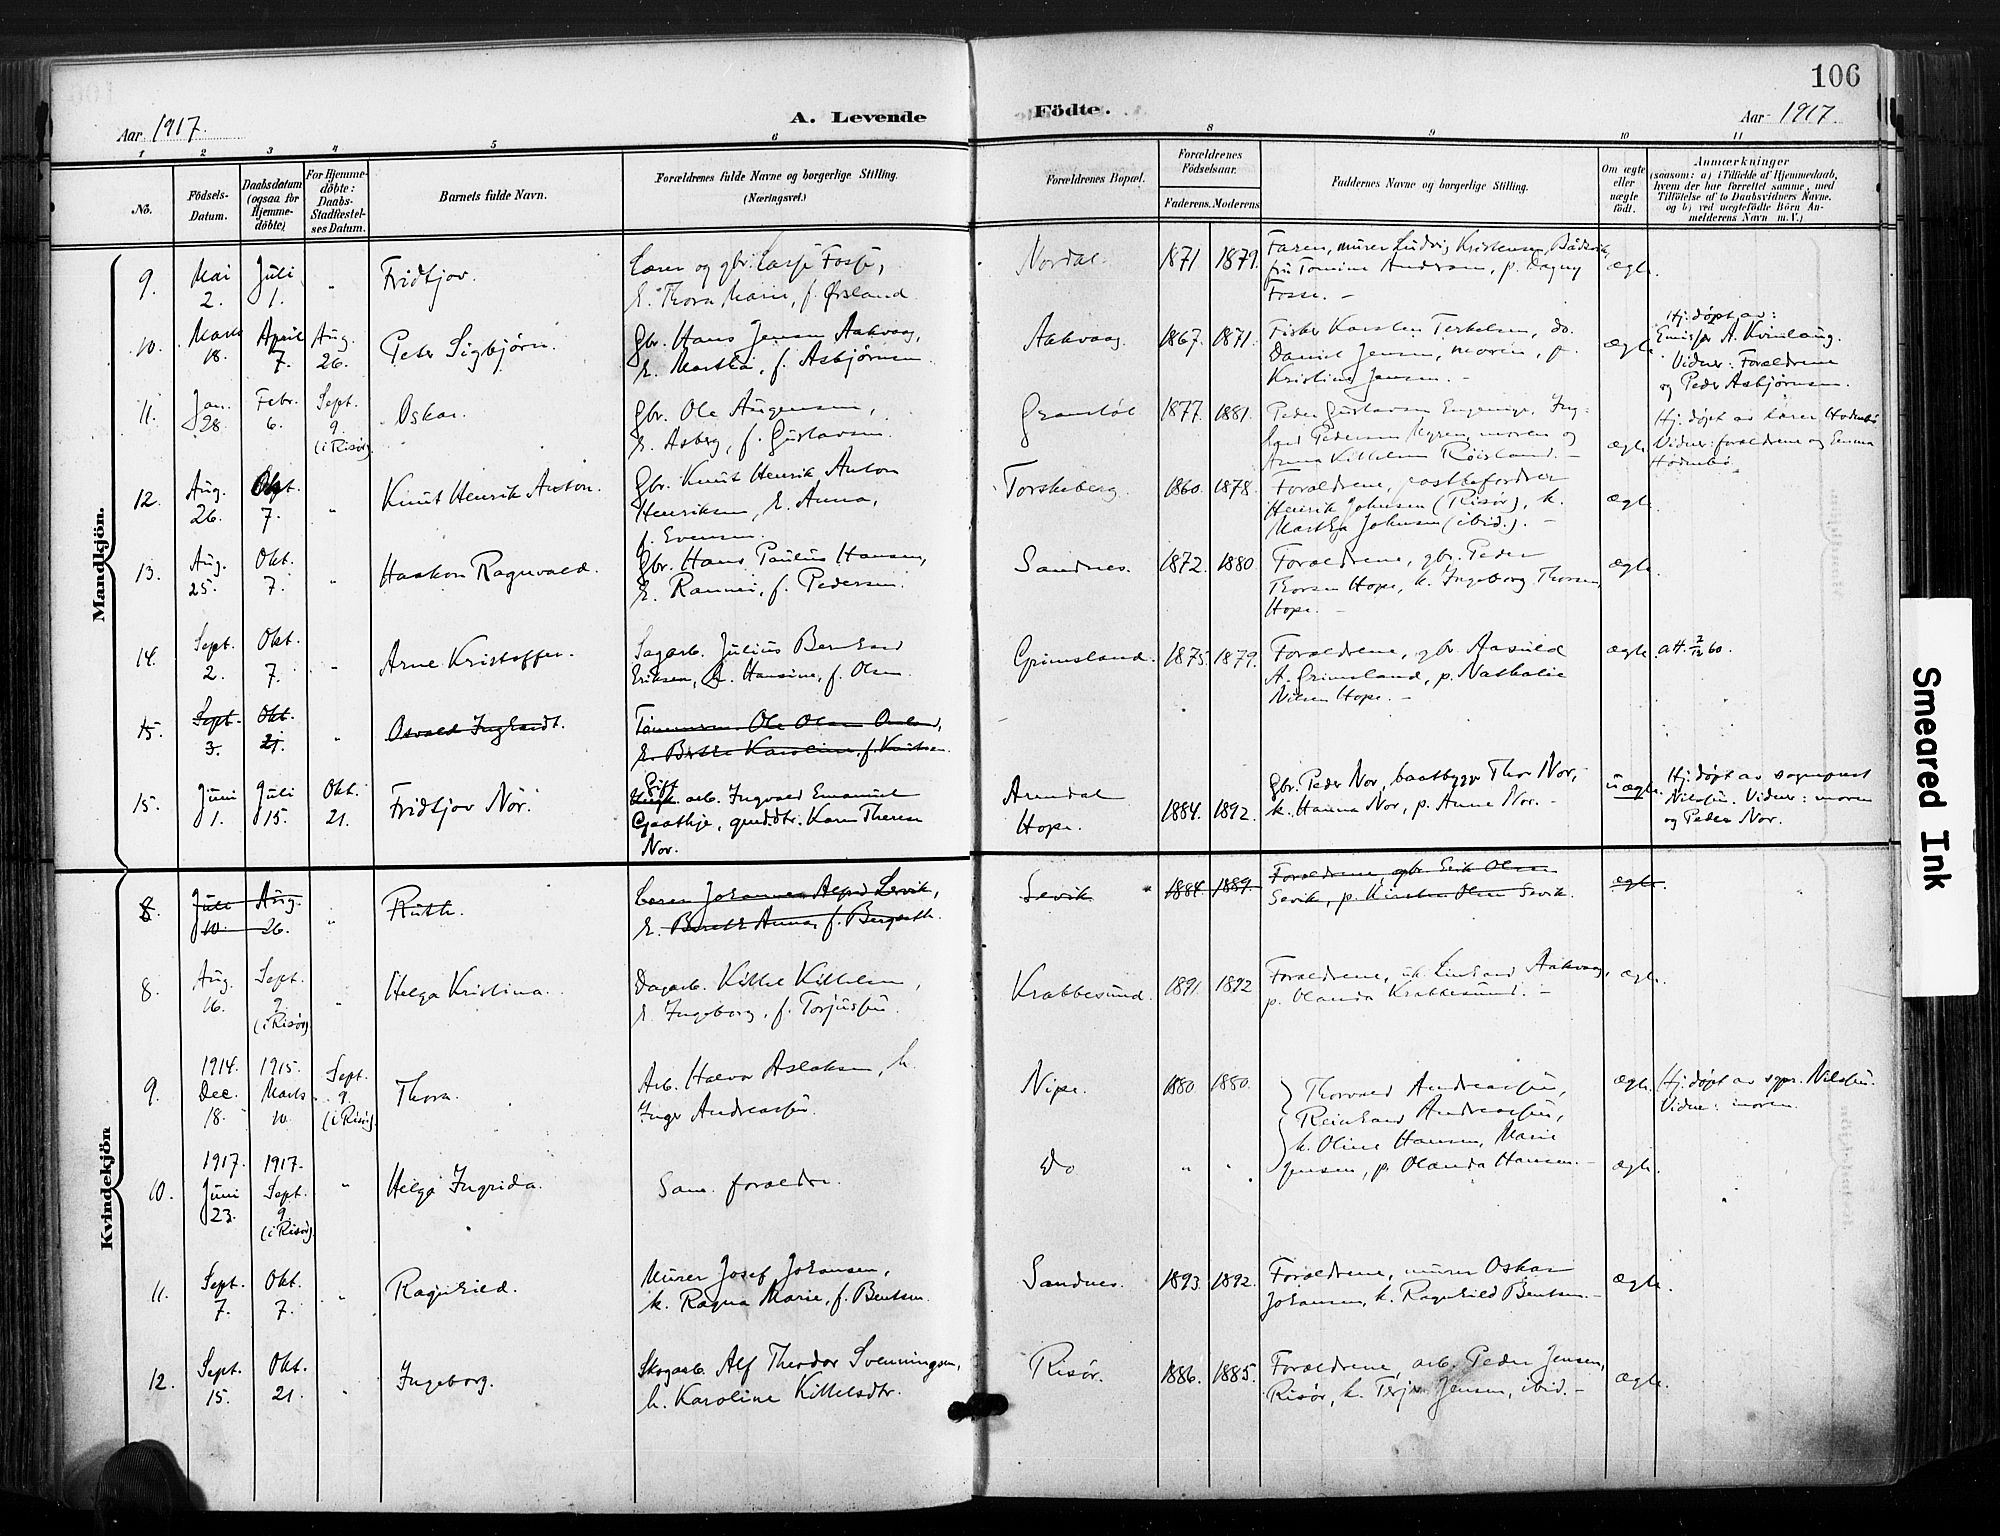 106
Aar 1917.
A. Levende
Födte.
Aar 1917.
1
2
3
4
5
6
8
9
10
11
No.
Födsels-
Datum.
Daabsdatum
(ogsaa for
Hjemme-
döbte)
For Hjemme-
döbte:
Daabs-
Stadfæstel-
ses Datum.
Barnets fulde Navn.
Forældrenes fulde Navne og borgerlige Stilling.
(Næringsvei.)
Forældrenes Bopæl.
Forældrenes
Födselsaar.
Faderens.
Moderens
Faddernes Navne og borgerlige Stilling.
Om ægte
eller
uægte
födt.
Anmærkninger
(saasom: a) i Tilfælde af Hjemmedaab,
hvem der har forrettet samme, med
Tilföielse af to Daabsvidners Navne.
og b) ved uægtefödte Börn An-
melderens Navn m. V.)
Mandkjön.
9.
Mai
2.
Juli
1.
"
Fridtjov.
Lærer og gbr. Fosse,
E. Thora Marie, f. Ørsland
Nordal.
1871
1879.
Faren, murer Ludvig Kristensen,
fru Tomine Andersen, p. Dagny
Fosse. –
ægte.
10.
Marts
18.
April
7.
Aug.
26.
Peter Sigbjörn.
Gbr. Hans Jensen Aakvaag,
E. Martha, f. Asbjörnsen.
Aakvaag
1867.
1871.
Fisker Karsten Terkelsen, do.
Daniel Jensen, moren, p.
Kristine Jensen. –
ægte.
Hj. døpt av:
A. Kvinlaug.
Vidner: Forældrene
og Peder Asbjørnsen.
11.
Jan.
28.
Febr.
6.
Sept.
9.
(i Risør).
Oskar.
Gbr. Ole Aagensen,
E. Asberg, f. Gustavsen.
1877.
1881.
Peder Gustavsen
Pedersen Myren, moren og
Anna Kittelsen Røisland. –
ægte.
Hj. døpt av lærer Hødnebø
Vidner: forældrene og Emma
Hødnebø.
12.
Aug.
26.
Okt.
7.
"
Knut Henrik Anton.
Gbr. Knut Henrik Anton
Henriksen, E. Anna,
f. Evensen.
Torskeberg.
1860.
1878.
Forældrene, postbefordrer
Henrik Johnsen (Risør), k.
Marthea Johnsen (ibid.). –
ægte.
13.
Aug.
25.
Okt.
7.
"
Haakon Ragnvald.
Gbr. Hans Paulus Hansen,
E. Rannei, f. Pedersen.
Sandnes.
1872.
1880.
Forældrene, gbr. Peder
Thorsen Hope, k. Ingeborg Thorsen,
Hope. –
ægte.
14.
Sept.
2.
Okt.
7.
"
Arne Kristoffer.
Sagarb. Julius Bernhard
Eriksen, h. Hansine, f. Olsen
Grimsland.
1875.
1879.
Forældrene, gbr. Aasuld
A. Grimsland, p. Nathalie
Nilsen Hope. –
ægte.
att. 7/12 60.
15.
Sept.
3.
Okt.
21.
"
Osvald Inghardt.
Ole Olsen
E. Berthe Karoline, f. Knutsen.
15.
Juni
1.
Juli
15.
Okt.
21.
Fridtjov Nor.
Gift
arb. Ingvald Emanuel
Gjeathje, Karen Therese
Nor.
Arendal
Hope.
1884.
1892.
Gbr. Peder Nor, baatbygger Thor Nor,
k. Hanna Nor, p. Anne Nor. –
uægte.
Hj. døpt av sogneprest
Nilssen. Vidner: moren
og Peder Nor.
Kvindekjön
8.
Juli
10.
Aug.
26.
"
Ruth.
Johannes Alfred Sevik,
E. Berthe Anna, f. Bergseth.
Sevik
1884.
1889.
Forældrene, gbr. Erik Olsen
Sevik, p. Kirsten Olsen Sevik.
ægte.
8.
Aug.
16.
Sept.
9.
(i Risør)
"
Helga Kristina.
Dagarb. Kittel Kittelsen,
E. Ingeborg, f. Torjussen.
Krabbesund.
1891.
1892
Forældrene, Aakvaag,
p. Olanda Krabbesund. –
ægte.
9.
1914.
Dec.
18.
1915.
Marts
10.
Sept.
9.
(i Risør).
Thora.
Arb. Halvor Aslaksen, h.
Inger Andreassen.
Nipe.
1880
1880.
Thorvald Andreassen,
Reinhard Andreassen,
k. Oline Hansen, Marie
Jensen, p. Olanda Hansen. –
ægte.
Hj. døpt av sgpr. Nilssen.
Vidne: moren.
10.
1917.
Juni
23.
1917.
Sept.
9.
(i Risør).
"
Helga Ingrida.
Sam. foræld.
Do
"
"
ægte.
11.
Sept.
7.
Okt.
7.
"
Ragnhild.
Murer Josef Johansen,
k. Ragna Marie, f. Bentsen.
Sandnes.
1893.
1892.
Forældrene, murer Oskar
Johansen, k. Ragnhild Bentsen. –
ægte.
12.
Sept.
15.
Okt.
21.
"
Ingeborg.
Skogarb. Alf Theodor Svenningsen,
h. Karoline Kittelsdtr.
Risør.
1886.
1885.
Forældrene, arb. Peder Jensen,
Risør, k. Terje Jensen, ibid. –
ægte.
Smeared Ink